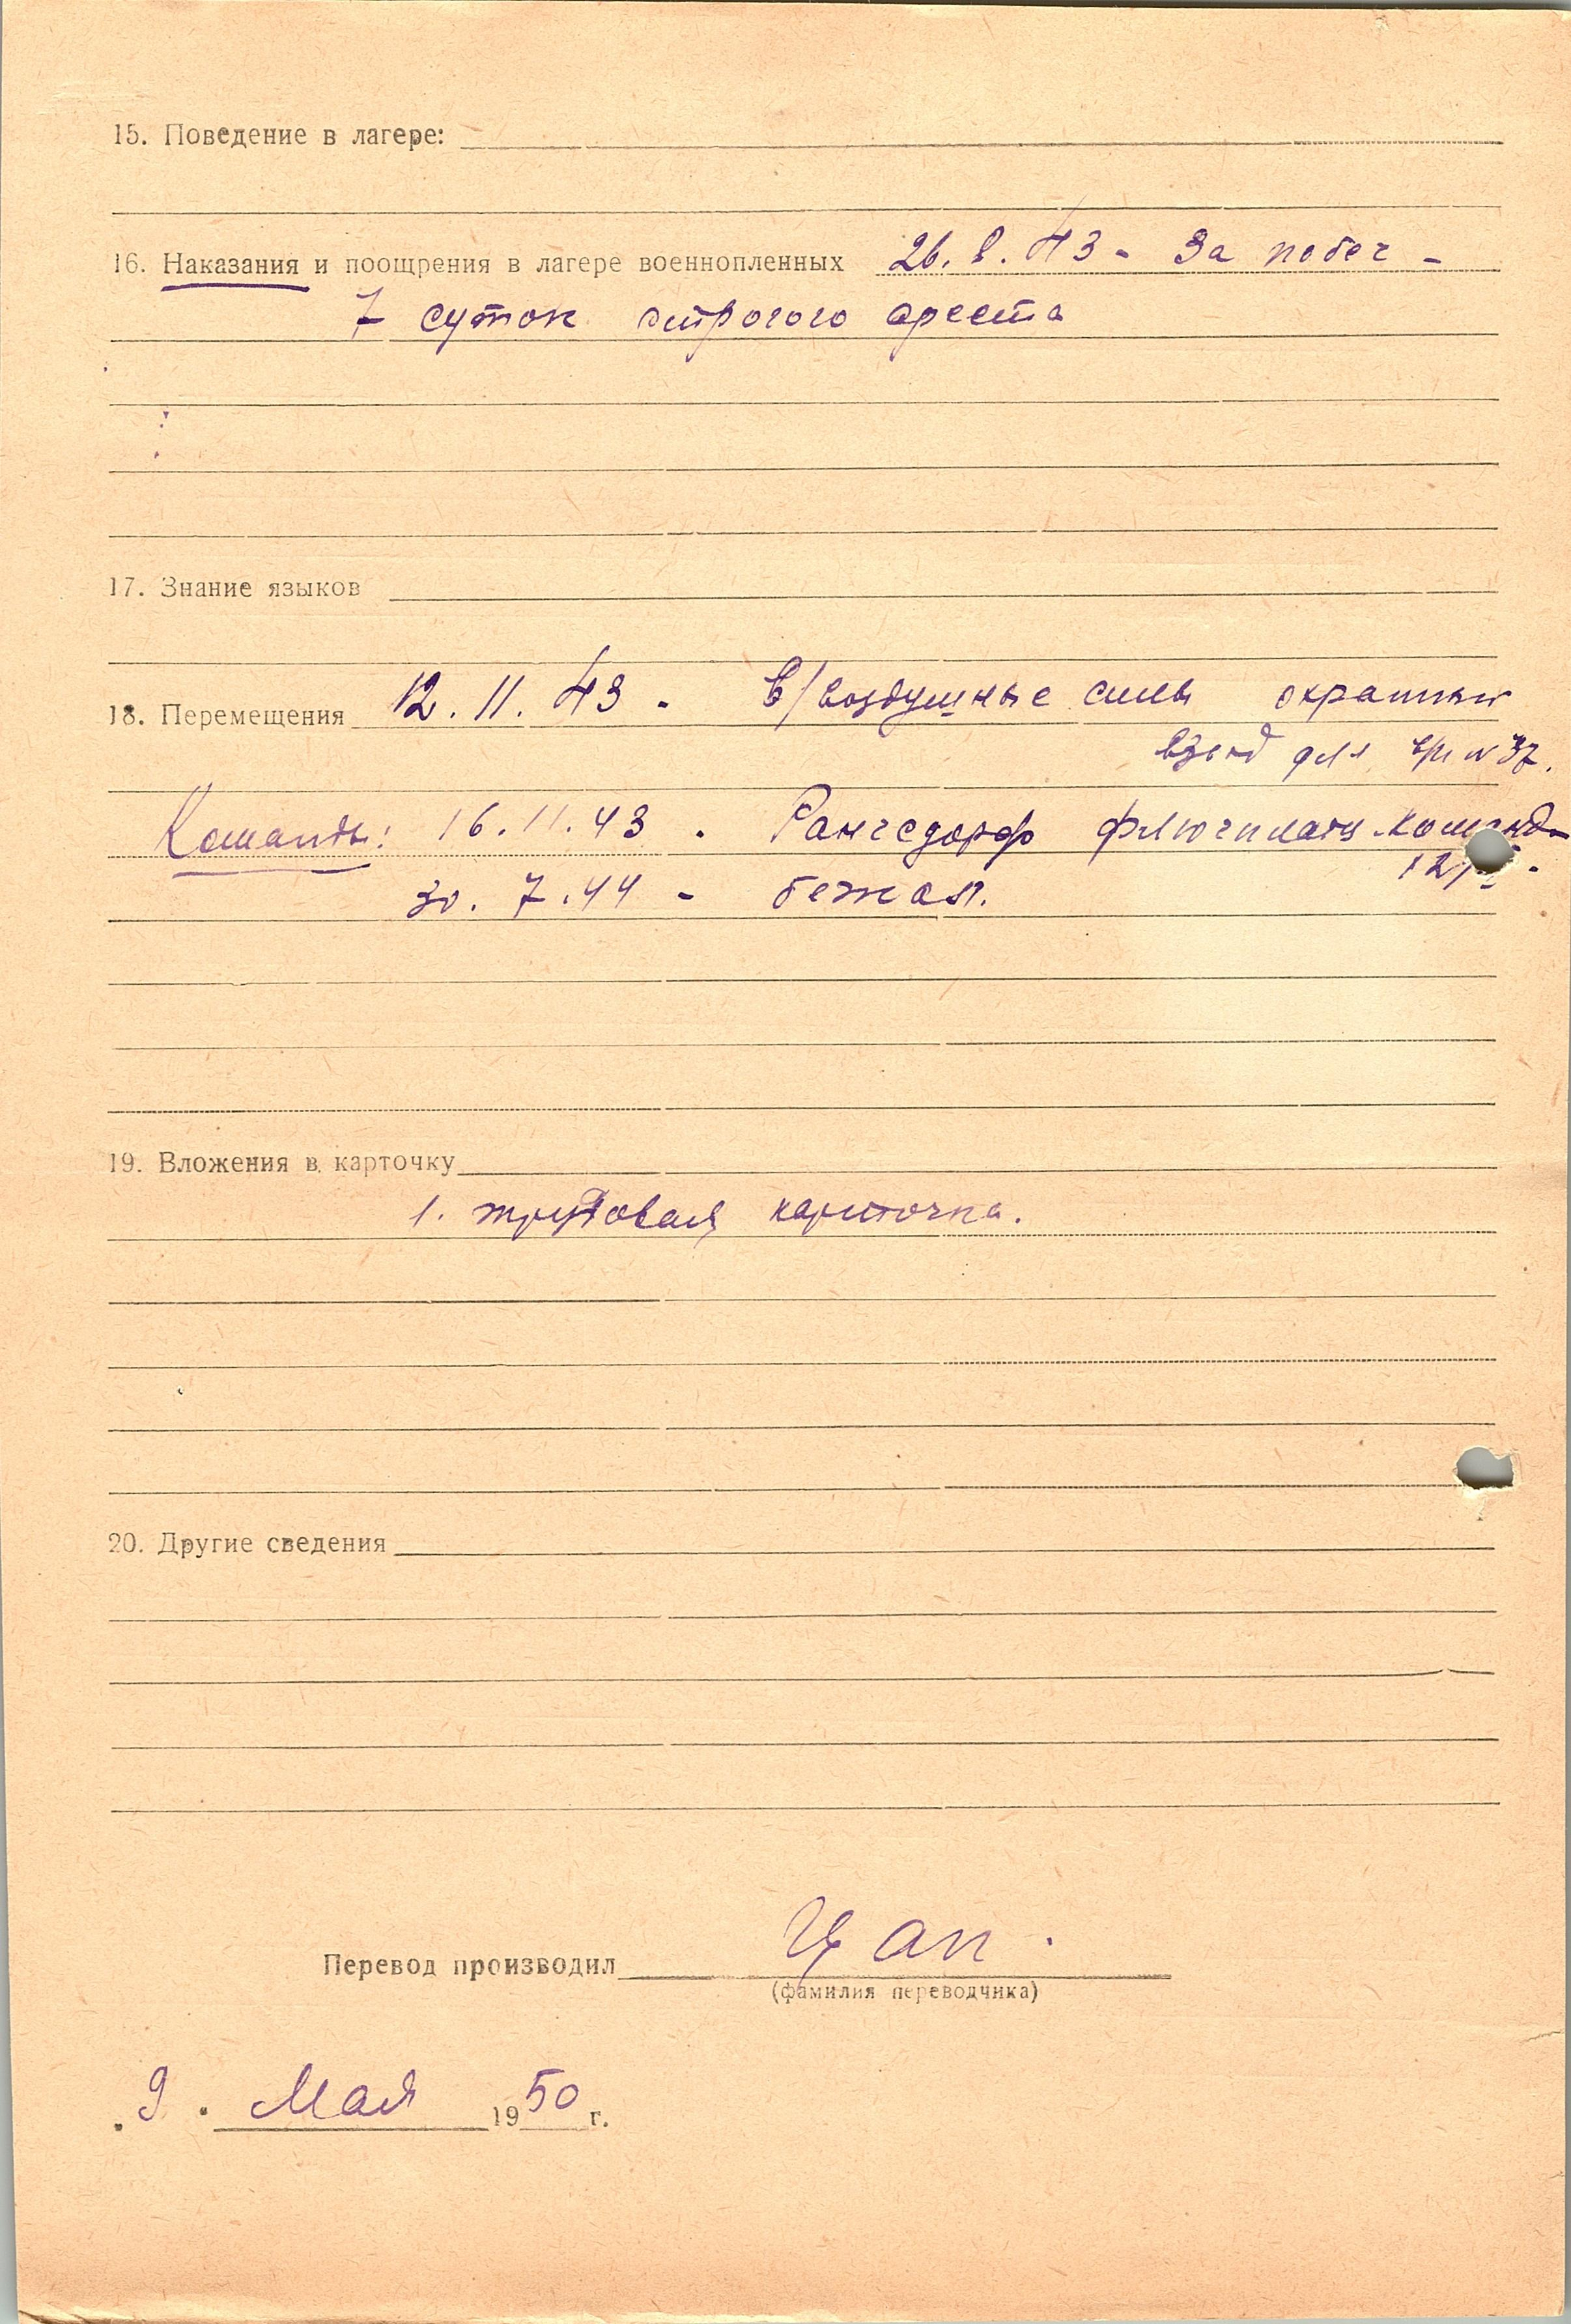 15. Поведение в лагере:
16. Наказания и поощрения в лагере военнопленных 26. 8. 43 - За побег -
7 суток строгого ареста
17. Знание языков
18. Перемещения 12. 11. 43 - В/воздушные силы охранный
взвод для в/п № 37.
Команды: 16. 11. 43 - Рангсдорф флюгплатц команд
30. 7. 44 - бежал.
19. Вложения в карточку
1. трудовая карточка.
20. Другие сведения
Перевод производил Цап.
(фамилия переводчика)
„9“ Мая 1950 г.